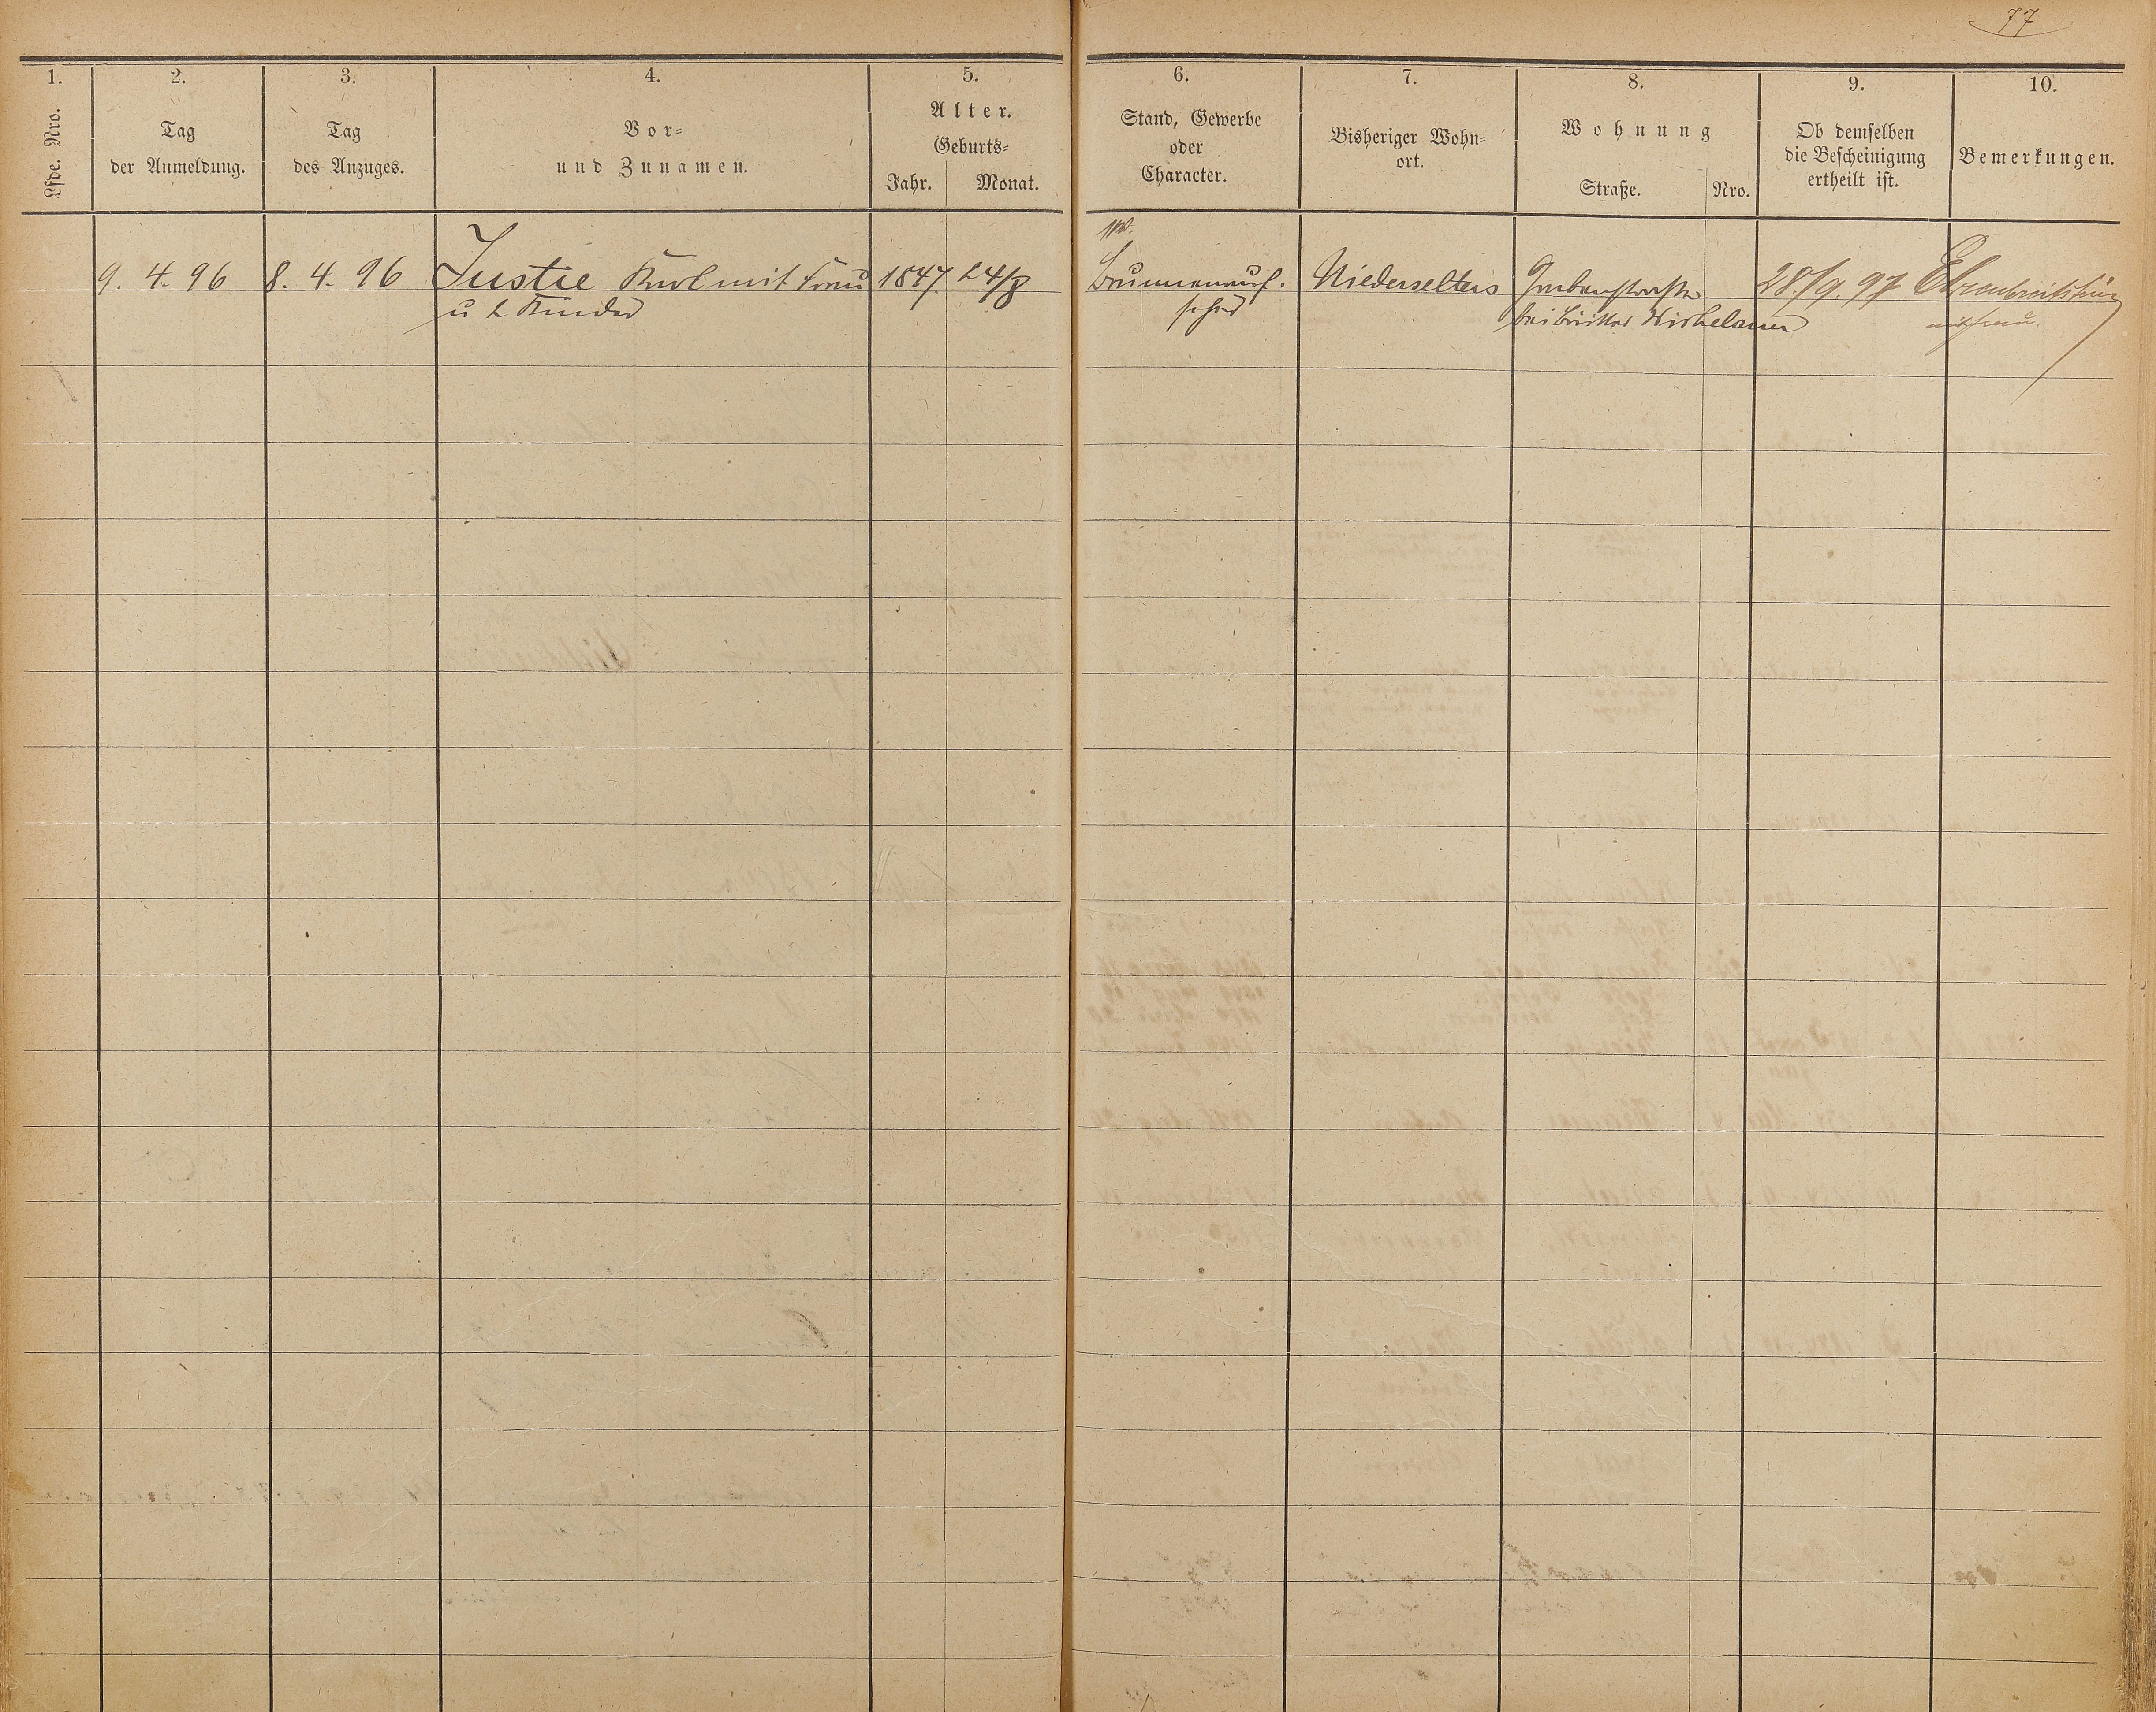 77
1. 2. 3. 4. 5. 6. 7. 8. 9. 10.
Lfde. Nro.
Tag
der Anmeldung.
Tag
des Anzuges.
Vor=
und Zunamen.
Alter.
Geburts=
Jahr. Monat.
Stand, Gewerbe
oder
Character.
Bisheriger Wohn=
ort.
Wohnung
Straße. Nro.
Ob demselben
die Bescheinigung
ertheilt ist.
Bemerkungen.
9. 4. 96 8. 4. 96 Justie Karl mit Frau 1847 24/8 Brunnenauf- Niederselters Grabenstraße 28/9. 97 Ehrenbreitstein
u 2 Kinder seher bei mit Frau.